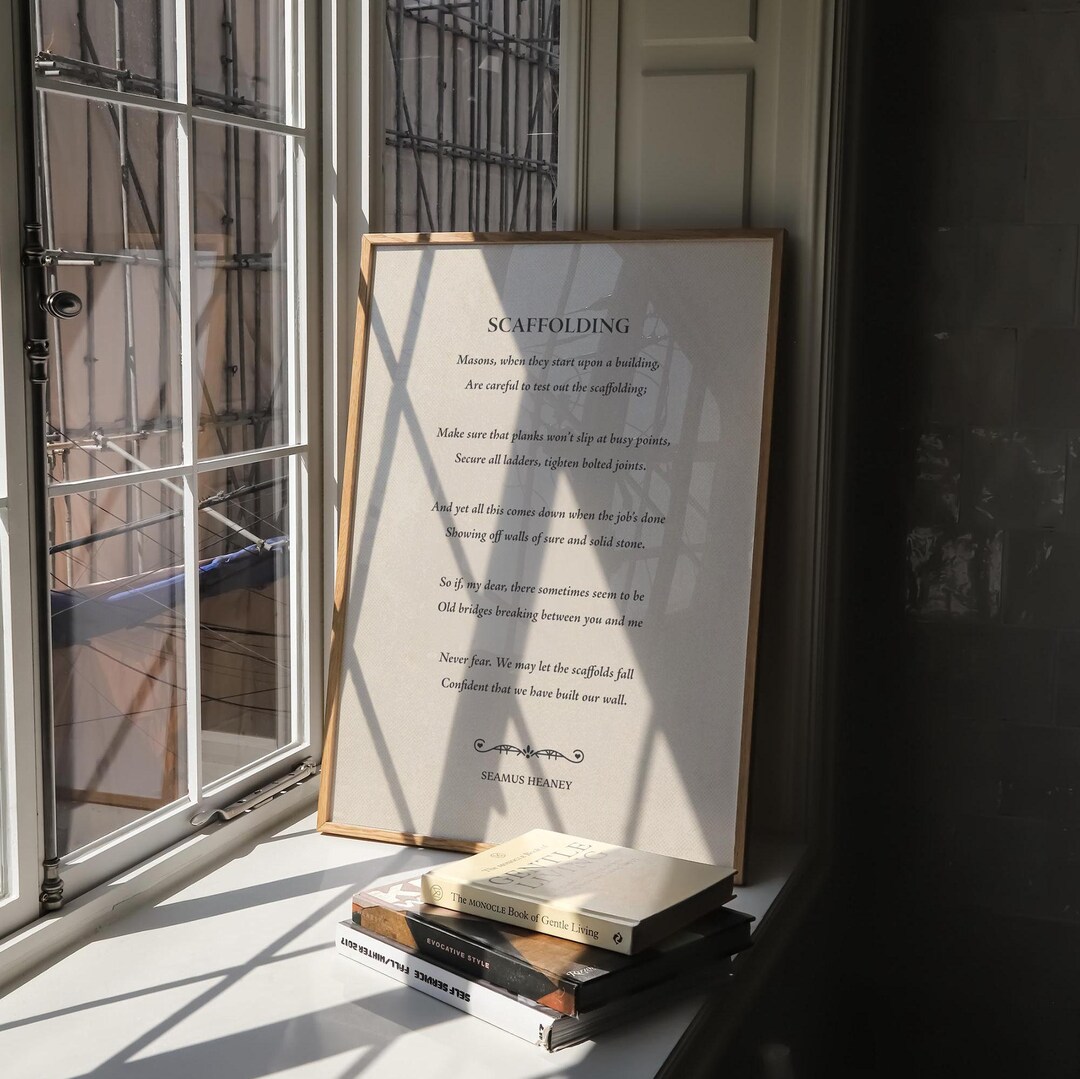 SCAFFOLDING
Masons, when they start upon a building,
Are careful to test out the scaffolding;
Make sure that planks won't slip at busy points,
Secure all ladders, tighten bolted joints.
And yet all this comes down when the job's done
Showing off walls of sure and solid stone.
So if, my dear, there sometimes seem to be
Old bridges breaking between you and me
Never fear. We may let the scaffolds fall
Confident that we have built our wall.
SEAMUS HEANEY
The MONOCLE Book of
GENTLE
LIVING
The MONOCLE Book of Gentle Living
EVOCATIVE STYLE
SELF SERVICE FALL/WINTER 2017